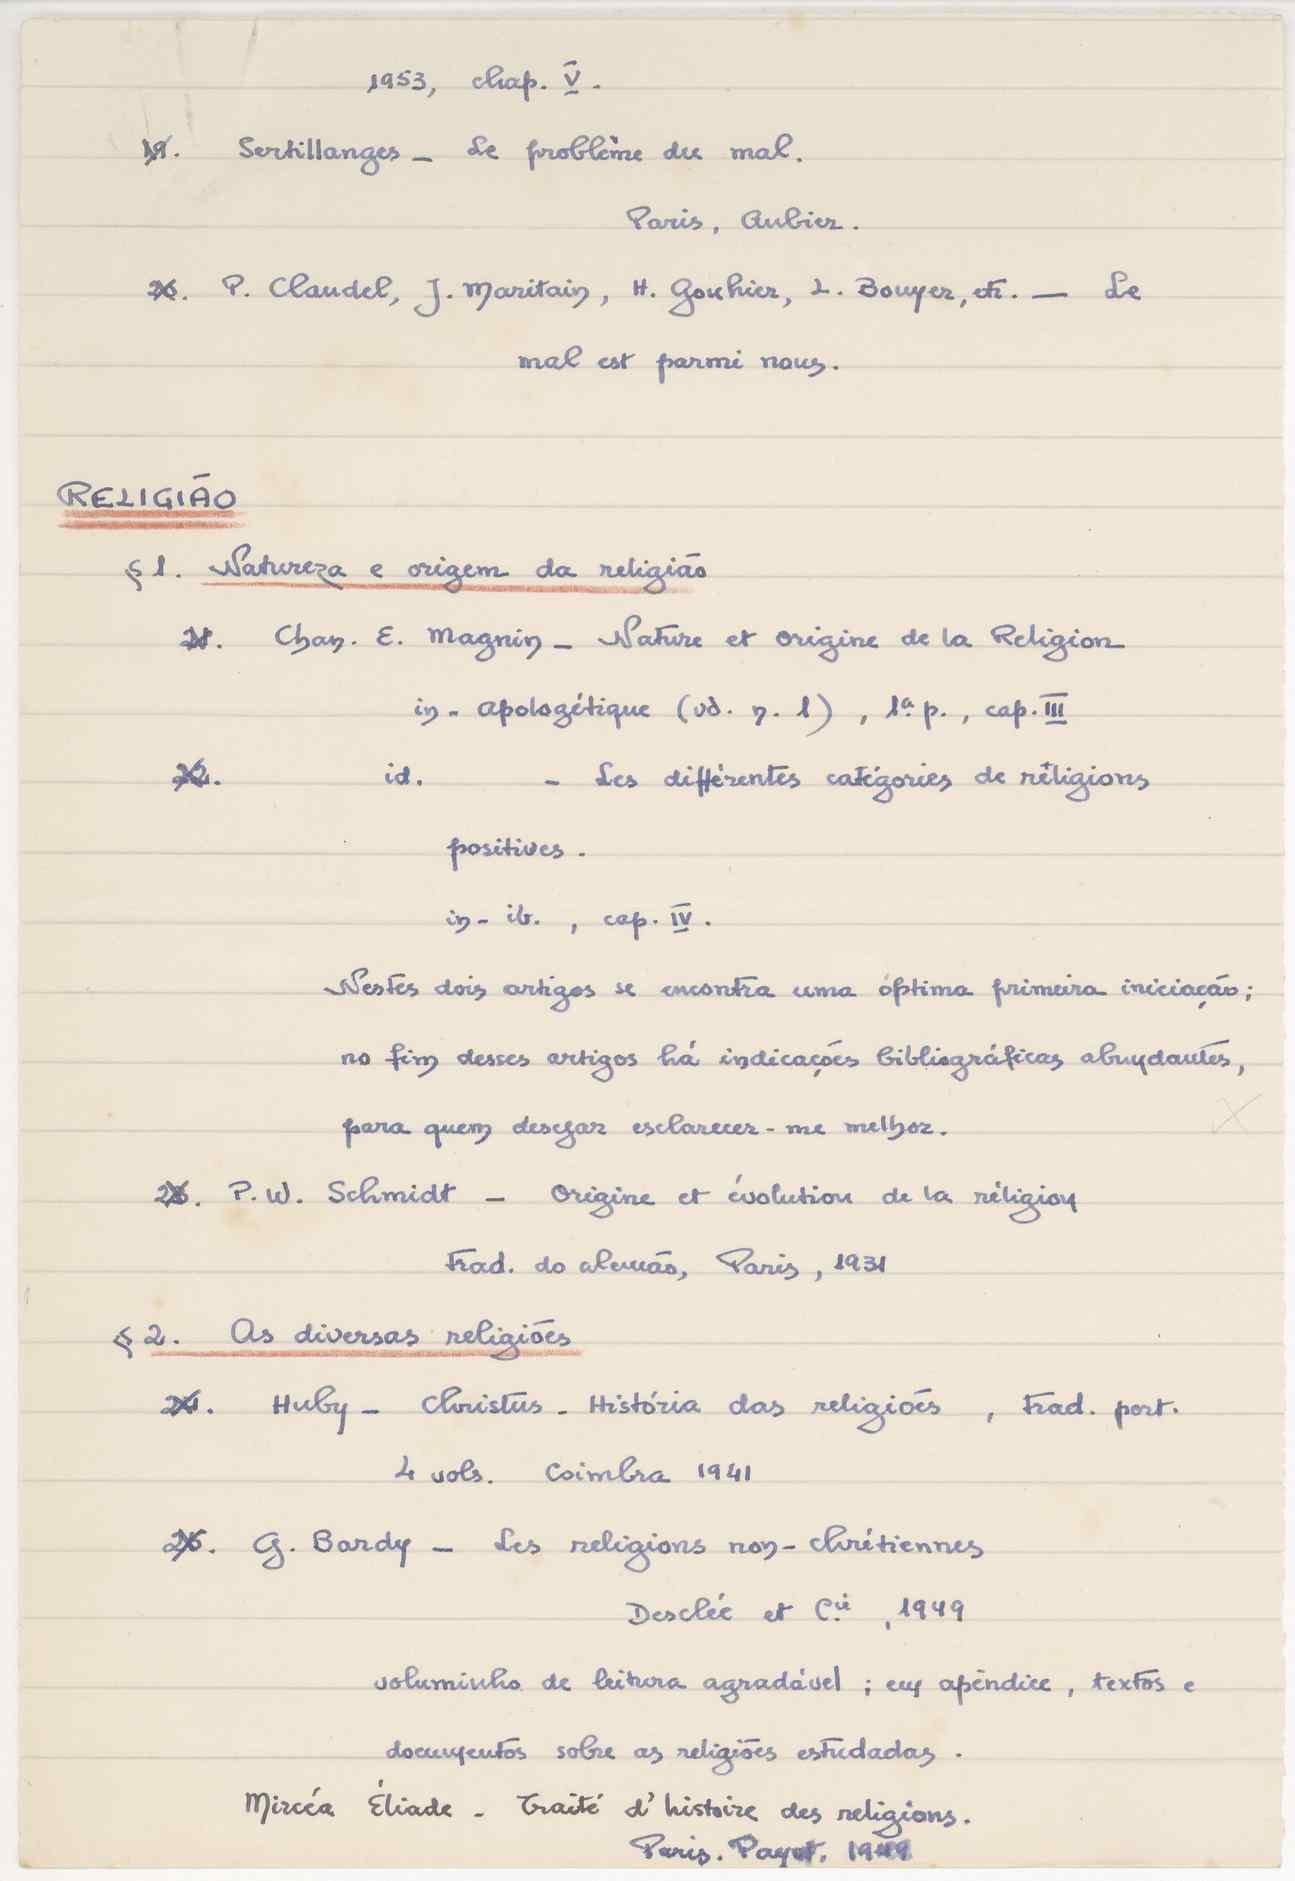 1953, chap. V.
19. Sertillanges – Le problème du mal.
Paris, Aubier.
20. P. Claudel, J. Maritain, H. Gouhier, L. Bouyer, etc. — Le
mal est parmi nous.
RELIGIÃO
§ 1. Natureza e origem da religião
21. Chan. E. Magnin – Nature et origine de la Religion
in - Apologétique (vd. n. 1), 1ª p., cap. III
22. id. – Les différentes catégories de réligions
positives.
in - ib., cap. IV.
Nestes dois artigos se encontra uma óptima primeira iniciação;
no fim desses artigos há indicações bibliográficas abundantes,
para quem desejar esclarecer-me melhor.
23. P. W. Schmidt – Origine et évolution de la réligion
Trad. do alemão, Paris, 1931
§ 2. As diversas religiões
24. Huby – Christus - História das religiões, trad. port.
4 vols. Coimbra 1941
25. G. Bardy – Les religions non-chrétiennes
Desclée et Cie, 1949
voluminho de leitura agradável; em apêndice, textos e
documentos sobre as religiões estudadas.
Mircéa Éliade - Traité d'histoire des religions.
Paris. Payot. 1949